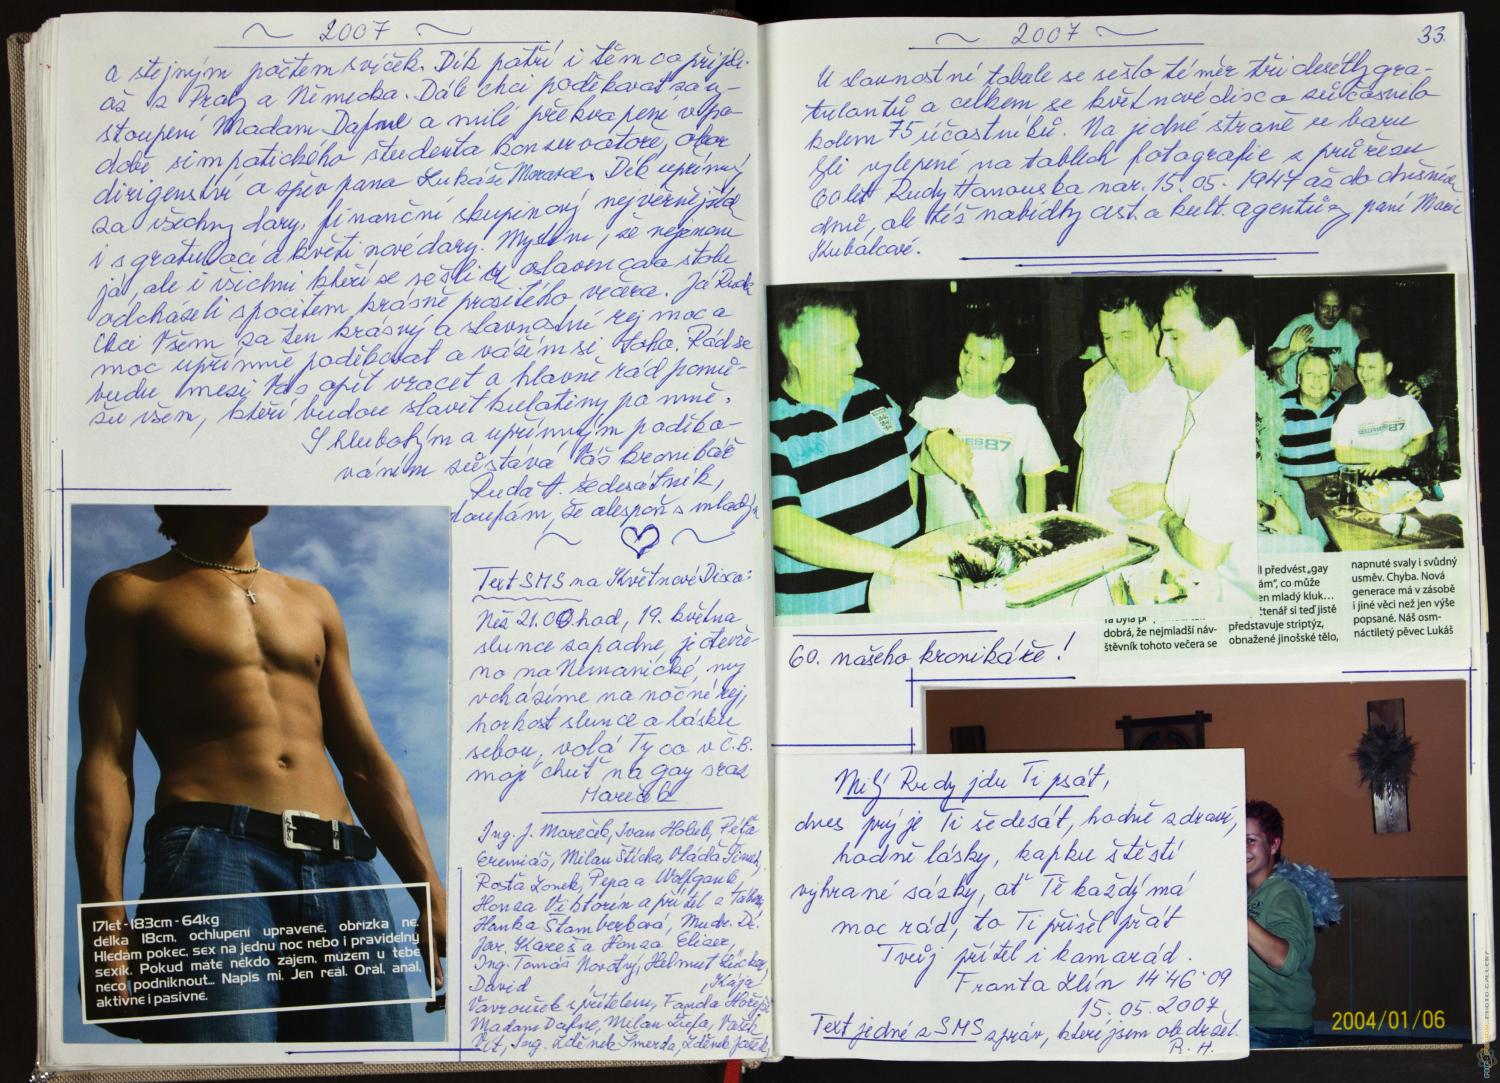 ~ 2007 ~
a stejným počtem svíček. Dík patří i těm co přijeli
až z Prahy a Německa. Dále chci poděkovat za vy-
stoupení Madam Dafné a milé překvapení v po-
době simpatického studenta konservatoře, obor
dirigenství a zpěv pana Lukáše Moravce. Dík upřímný
za všechny dary, finanční skupinový nejvěrnějších
i s gratulací a květinové dary. Myslím, že nejenom
já, ale i všichni kteří se sešli u oslavencova stolu
odcházeli s pocitem krásně prožitého večera. Já Ruda
chci Všem za ten krásný a slavnostní rej moc a
moc upřímně poděkovat a vážím si toho. Rád se
budu mezi Vás opět vracet a hlavně rád pomů-
žu všem, kteří budou slavit kulatiny po mně.
S hlubokým a upřímným poděko-
váním zůstává Váš kronikář
Ruda H. šedesátník,
doufám, že alespoň s mladým
~ ♡ ~
Text SMS na Květnové Disco:
Než 21.00 hod, 19. května
slunce zapadne, je otevře-
no na Nemanické, my
vcházíme na noční rej,
horkost slunce a lásku
sebou, volá Ty co v Č.B.
mají chuť na gay sraz
Mareček
Ing. J. Mareček, Ivan Holub, Péťa
Eremiáš, Milan Štícha, Vláďa
Rosťa Lonek, Pepa a Wolfgank,
Honza Viktorin a přítel z
Hanka Štamberková, Mudr. Dé.
Jar. Kareš a Honza Elizer,
Ing. Tomáš Novotný, Helmut
David , Kája
Vavroušek s přítelem, Fanda
Madam Dafné, Milan
Vít, Ing. Zdeněk Smerda, Zdeněk
~ 2007 ~
33.
U slavnostní tabule se sešlo téměř tři desetky gra-
tulantů a celkem se květnové disco zůčasnilo
kolem 75 účastníků. Na jedné straně u baru
byli vylepené na tablích fotografie z průřezu
60 let Rudy Hanouska nar. 15.05.1947 až do dnešních
dnů, ale též nabídky cest. a kult. agentůry paní Marie
Kubálcové.
ES87
ll předvést „gay
ám“, co může
en mladý kluk…
čtenář si teď jistě
představuje striptýz,
obnažené jinošské tělo,
napnuté svaly i svůdný
usměv. Chyba. Nová
generace má v zásobě
i jiné věci než jen výše
popsané. Náš osm-
náctiletý pěvec Lukáš
dobrá, že nejmladší náv-
štěvník tohoto večera se
60. našeho kronikáře!
Milý Rudy jdu Ti psát,
dnes prý je Ti šedesát, hodně zdraví,
hodně lásky, kapku štěstí
vyhrané sázky, ať Tě každý má
moc rád, to Ti přišel přát
Tvůj přítel i kamarád.
Franta Zlín 14'46'09
15.05.2007
Text jedné z SMS zpráv, které jsem obdržel.
R. H.
2004/01/06